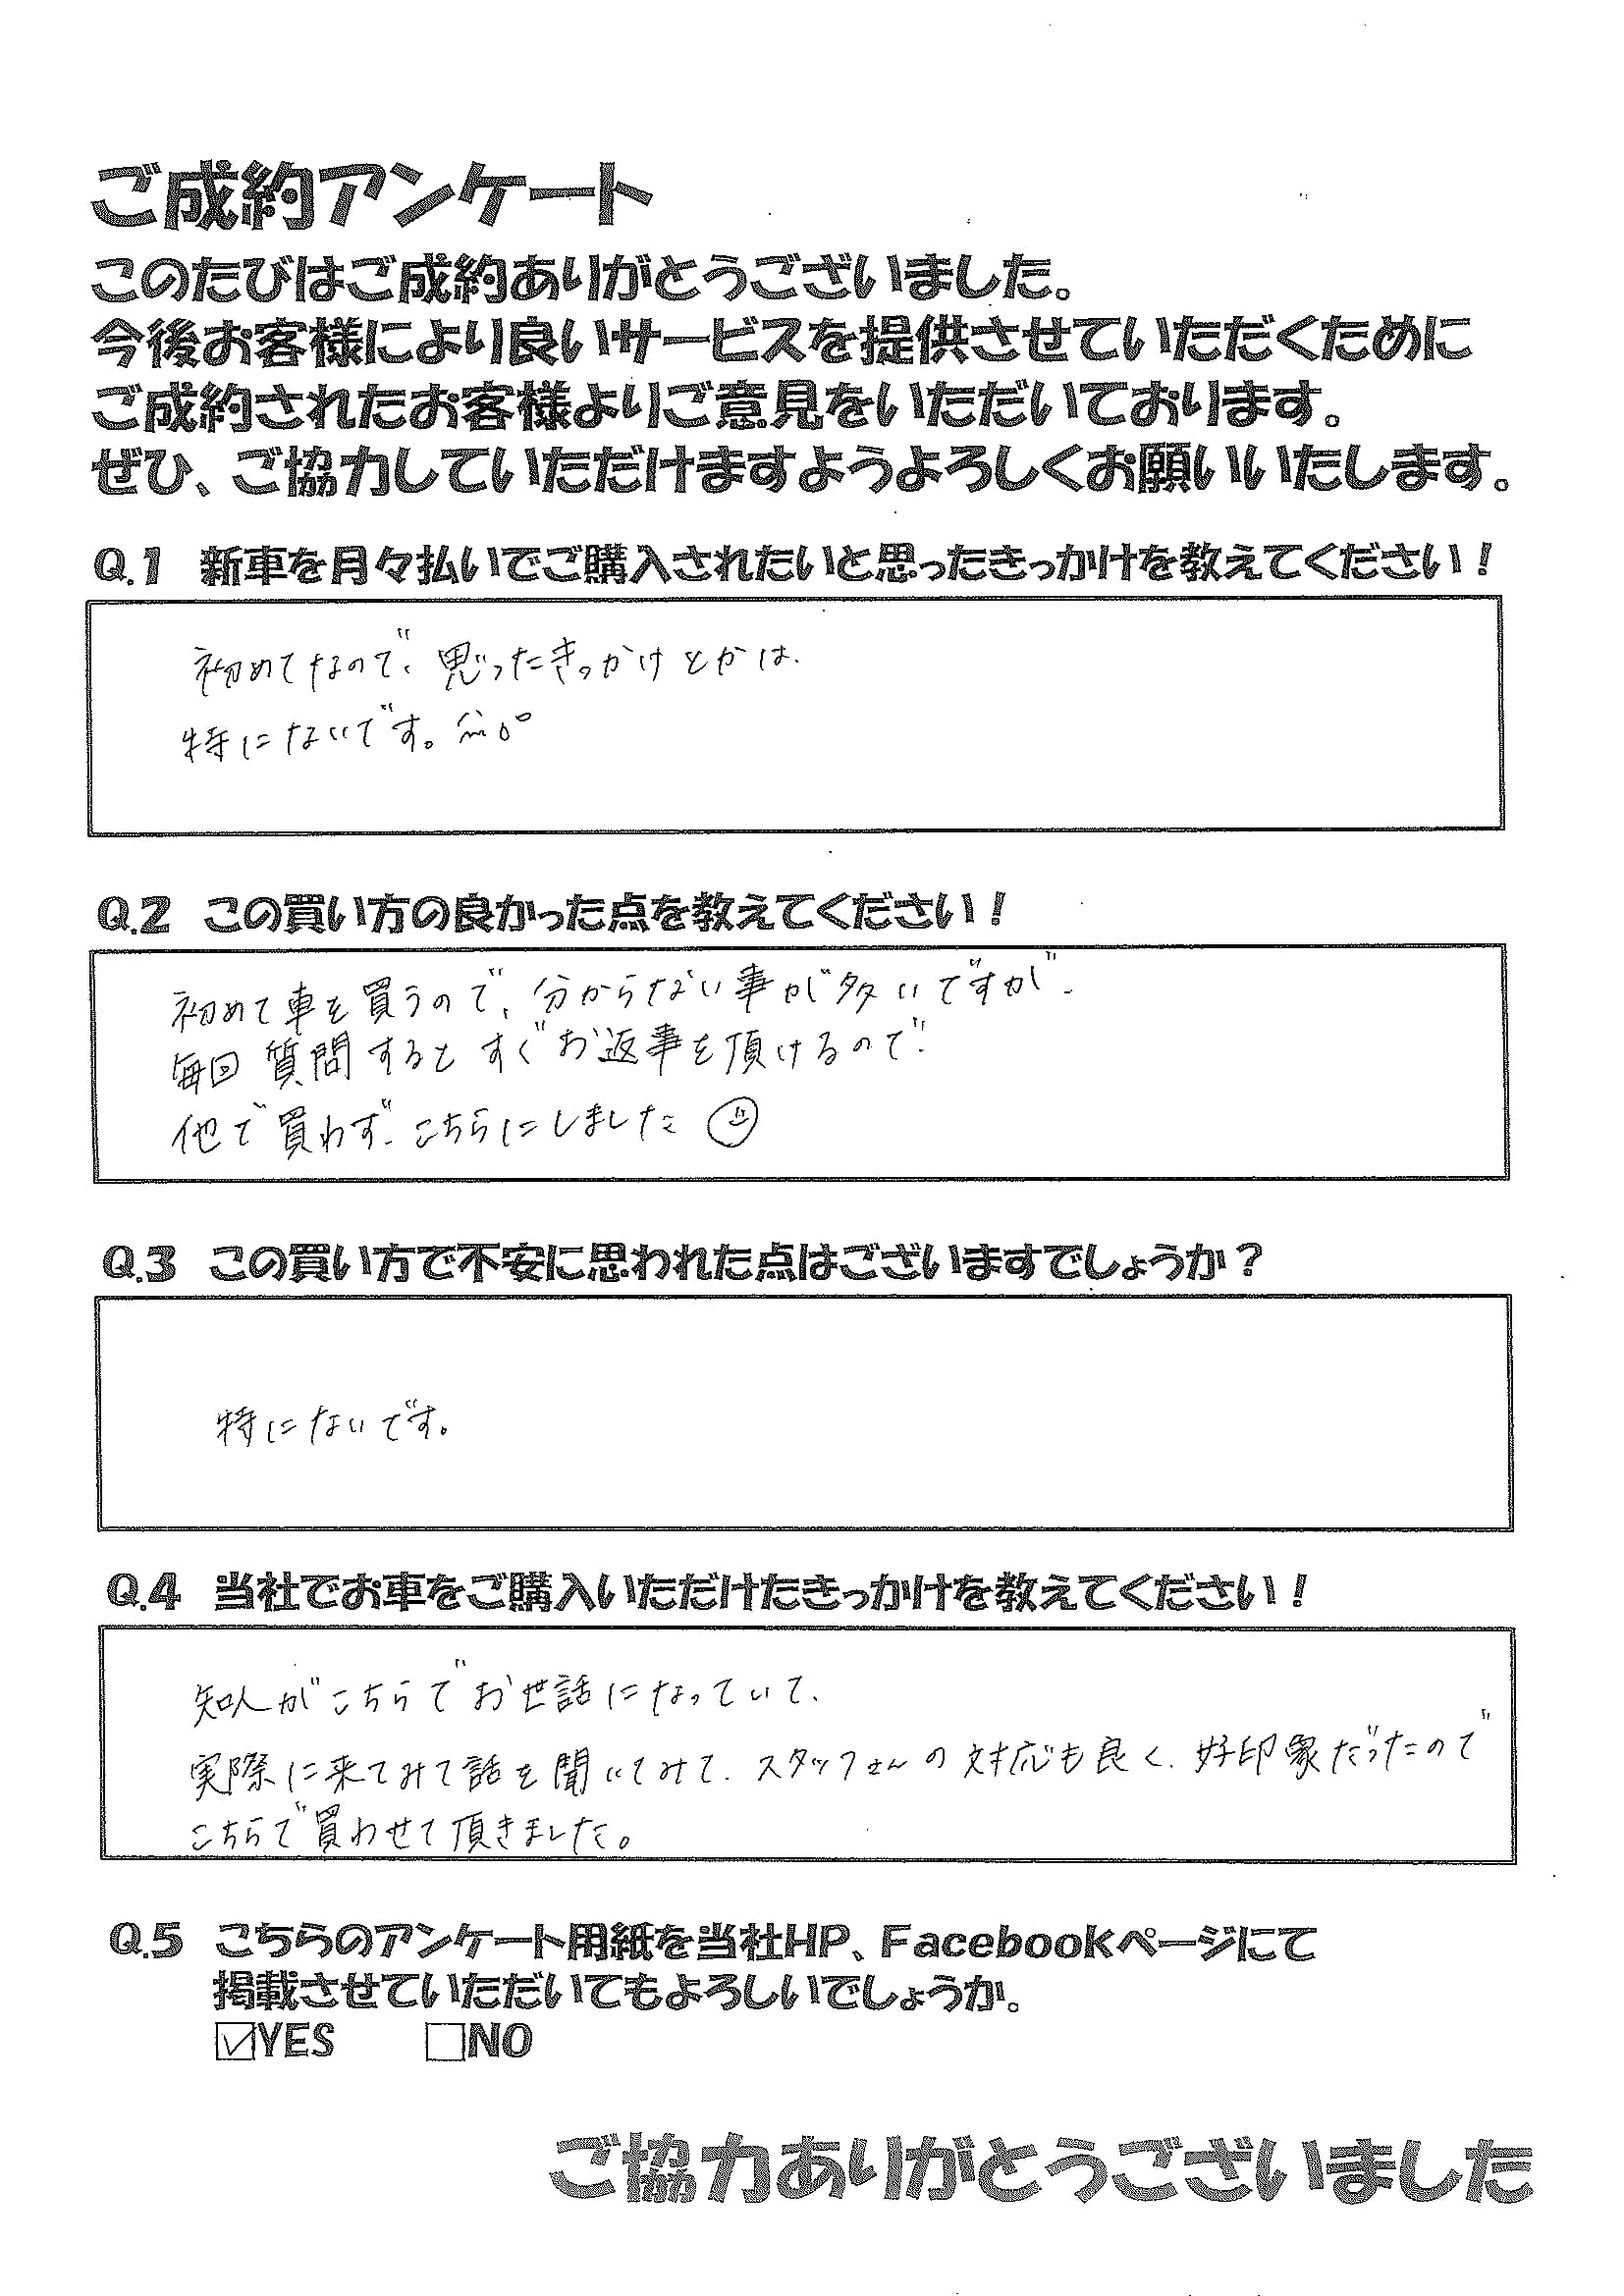 ご成約アンケート
このたびはご成約ありがとうございました。
今後お客様により良いサービスを提供させていただくために
ご成約されたお客様よりご意見をいただいております。
ぜひ、ご協力していただけますようよろしくお願いいたします。
Q.1 新車を月々払いでご購入されたいと思ったきっかけを教えてください！
初めてなので、思ったきっかけとかは、
特にないです。
Q.2 この買い方の良かった点を教えてください！
初めて車を買うので、分からない事が多いですが、
毎回質問するとすぐお返事を頂けるので
他で買わず、こちらにしました
Q.3 この買い方で不安に思われた点はございますでしょうか？
特にないです。
Q.4 当社でお車をご購入いただけたきっかけを教えてください！
知人がこちらでお世話になっていて、
実際に来てみて話を聞いてみて、スタッフさんの対応も良く、好印象だったので
こちらで買わせて頂きました。
Q.5 こちらのアンケート用紙を当社HP、Facebookページにて
掲載させていただいてもよろしいでしょうか。
☑YES □NO
ご協力ありがとうございました